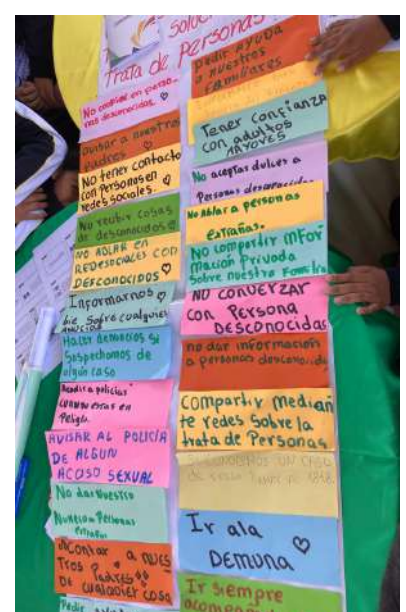 Soluc
Trata de Personas
No confiar en perso-
nas desconocidas. ♡
avisar a nuestros
padres ♡
No tener contacto
con Personas en
redes sociales. ♡
No recibir cosas
de desconocidos ♡
NO ABLAR EN
REDESOCIALES CON
DEFCONOCIDOS ♡
Informarnos ♡
bie sobre cualquier
Hacer denuncias si
sospechamos de
algun caso
Acudir a policias
CUANDO estas en
Peligro
AVISAR AL POLICÍA
DE ALGUN
ACOSO SEXUAL
No dar Nuestro
Numero a Personas
extrañas
Contar a NUES
Tros Padres
De cualquier cosa
Pedir
pedir ayuda
a nuestros
familiares
Tener confianza
con adultos
MAYORES
No aceptar dulces a
Personas desconocidas
No Ablar a personas
extrañas.
No compartir infor
mación Privada
Sobre nuestra Familia
NO CONVERZAR
CON PERSONA
DESCONOCIDAS
no dar información
a personas desconocida
Compartir median
te redes Sobre la
trata de Personas
SI CONOCEMOS UN CASO
de trata llamar al 1818.
Ir ala
DEMUNA ♡
Ir siempre
acompaña